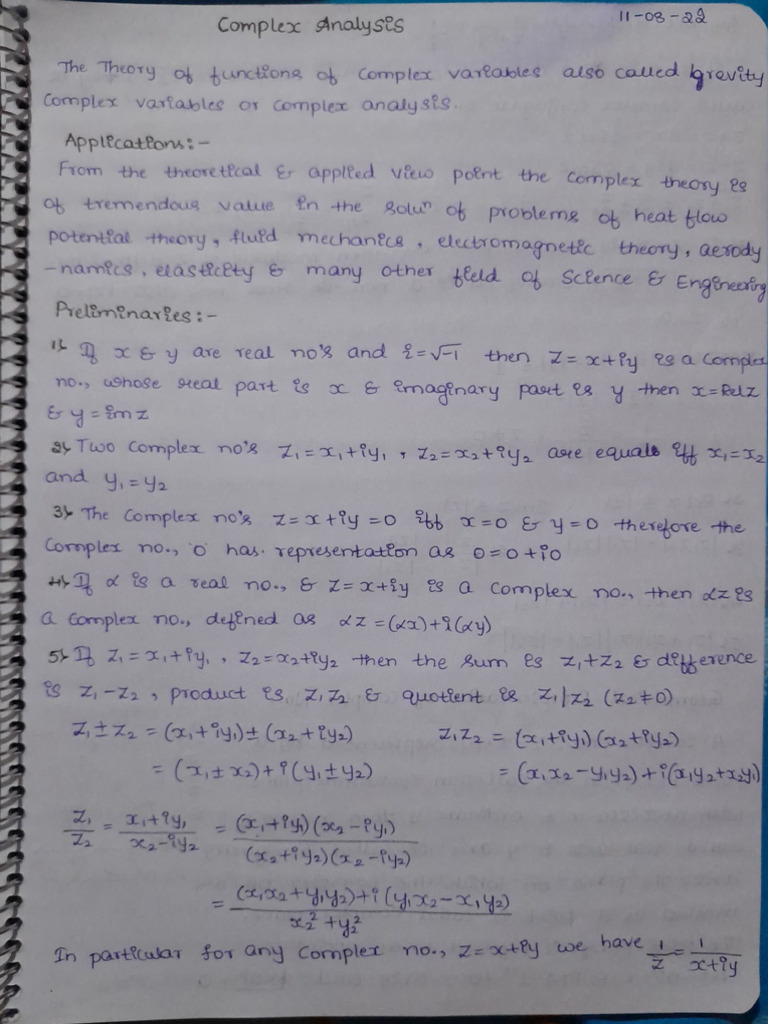 Complex Analysis
11-08-22
The Theory of functions of complex variables also called brevity
Complex variables or complex analysis.
Applications:-
From the theoretical & applied view point the complex theory is
of tremendous value in the soluⁿ of problems of heat flow
potential theory, fluid mechanics, electromagnetic theory, aerody
-namics, elasticity & many other field of Science & Engineering
Preliminaries:-
1) If x & y are real no's and i=√-1 then z = x+iy is a complex
no., whose real part is x & imaginary part is y then x=Relz
& y = im z
2) Two complex no's z₁ = x₁+iy₁, z₂=x₂+iy₂ are equals iff x₁=x₂
and y₁=y₂
3) The complex no's z=x+iy=0 iff x=0 & y=0 therefore the
complex no., '0' has representation as 0=0+i0
4) If α is a real no., & z=x+iy is a complex no., then αz is
a complex no., defined as αz =(αx)+i(αy)
5) If z₁=x₁+iy₁, z₂=x₂+iy₂ then the sum is z₁+z₂ & difference
is z₁-z₂, product is, z₁z₂ & quotient is z₁/z₂ (z₂≠0)
z₁±z₂ = (x₁+iy₁)±(x₂+iy₂) z₁z₂ = (x₁+iy₁)(x₂+iy₂)
= (x₁±x₂)+i(y₁±y₂) = (x₁x₂-y₁y₂)+i(x₁y₂+x₂y₁)
z₁/z₂ = x₁+iy₁/x₂-iy₂ = (x₁+iy₁)(x₂-iy₁)/(x₂+iy₂)(x₂-iy₂)
= (x₁x₂+y₁y₂)+i(y₁x₂-x₁y₂)/x₂²+y₂²
In particular for any complex no., z=x+iy we have 1/z = 1/x+iy